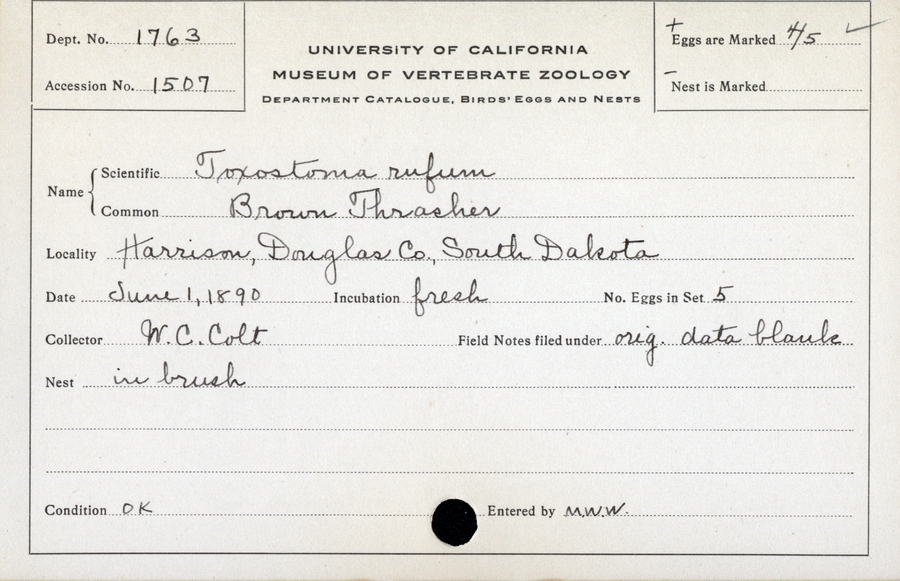 Dept. No. 1763
Accession No. 1507
UNIVERSITY OF CALIFORNIA
MUSEUM OF VERTEBRATE ZOOLOGY
DEPARTMENT CATALOGUE, BIRDS' EGGS AND NESTS
+
Eggs are Marked 4/5 ✓
–
Nest is Marked
Name { Scientific Toxostoma rufum
Common Brown Thrasher
Locality Harrison, Douglas Co., South Dakota
Date June 1, 1890 Incubation fresh No. Eggs in Set 5
Collector W. C. Colt Field Notes filed under orig. data blank
Nest in brush
Condition OK Entered by M.W.W.